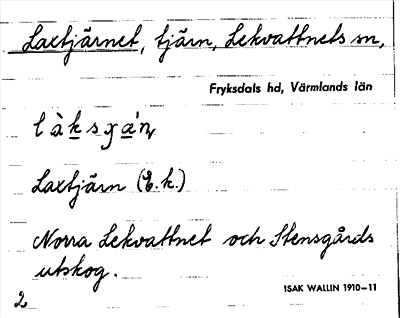 Laxtjärnet, tjärn, Lekvattnets sn,
Fryksdals hd, Värmlands län
Laxtjärn (E.k.)
Norra Lekvattnet och Stensgårds
utskog.
2
ISAK WALLIN 1910–11